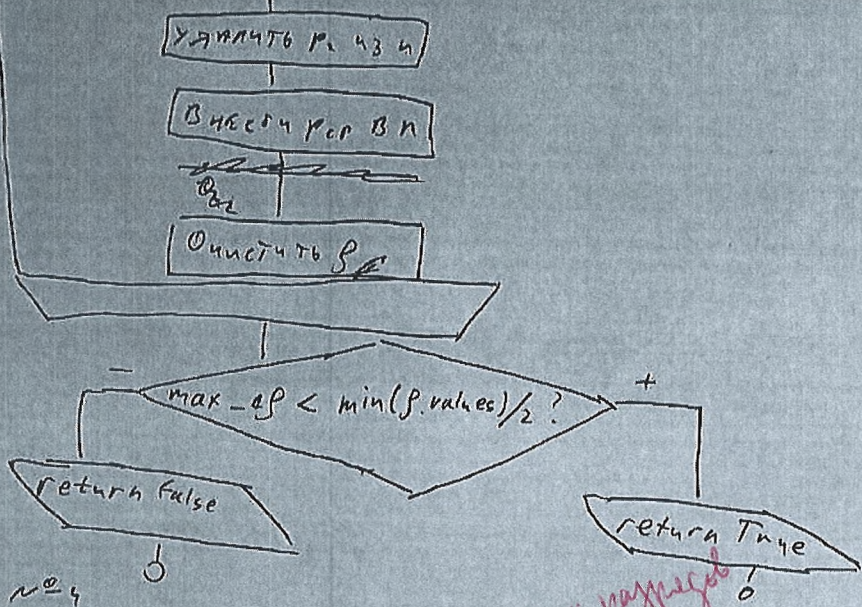 Удалить р₂ из ч
Внести рср в п
Очистить ρ
max_ρ < min(ρ.values)/2 ?
−
+
return False
return True
№ 4